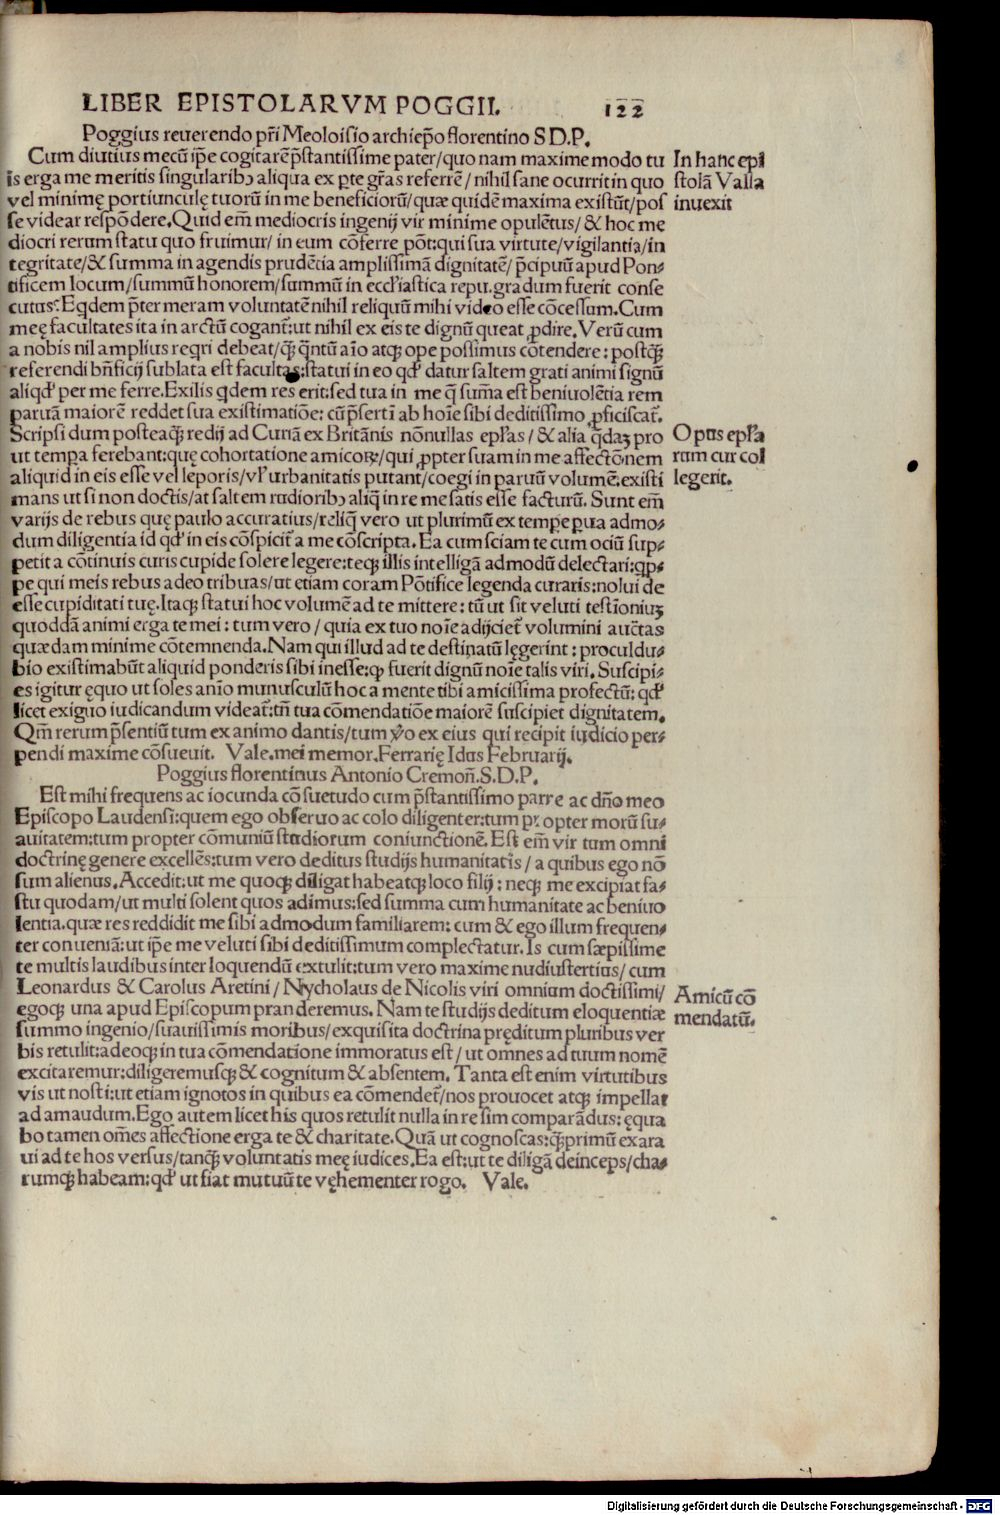 LIBER EPISTOLARVM POGGII. 122
Poggius reuerendo pr̃i Meoloisio archiep̃o florentino S D.P.
Cum diutius mecũ ip̃e cogitarẽ p̃stantissime pater/quo nam maxime modo tu
is erga me meritis singularibꝫ aliqua ex ꝑte gr̃as referrẽ/nihil sane ocurrit in quo
vel minimę portiunculę tuorũ in me beneficiorũ/quæ quidẽ maxima existũt/pos
se videar respõdere.Quid em̃ mediocris ingenij vir minime opulẽtus/& hoc me
diocri rerum statu quo fruimur/in eum cõferre põt:qui sua virtute/vigilantia/in
tegritate/& summa in agendis prudẽtia amplissimã dignitatẽ/p̃cipuũ apud Pon⸗
tificem locum/summũ honorem/summũ in eccl'iastica repu.gradum fuerit conse
cutus?Eqdem p̃ter meram voluntatẽ nihil reliquũ mihi video esse cõcessum.Cum
meę facultates ita in arctũ cogant̃:ut nihil ex eis te dignũ queat ꝓdire.Verũ cum
a nobis nil amplius reqri debeat/q̃ꝫ q̃ntũ aĩo atqꝫ ope possimus cõtendere:postq̃ꝫ
referendi bñficij sublata est facultas:statui in eo qd' datur saltem grati animi signũ
aliqd' per me ferre.Exilis qdem res erit:sed tua in me q̃ sum̃a est beniuolẽtia rem
paruã maiorẽ reddet sua existimatiõe:cũ p̃serti ab hoĩe sibi deditissimo ꝓficiscat̃.
Scripsi dum posteaq̃ꝫ redij ad Curiã ex Britãnis nõnullas epl'as/& alia q̃daꝫ pro
ut tempa ferebant:quę cohortatione amicoꝝ/qui ꝓpter suam in me affectõnem
aliquid in eis esse vel leporis/vl' urbanitatis putant/coegi in paruũ volumẽ.existi
mans ut si non doctis/at saltem rudioribꝫ aliq̃ in re me satis esse facturũ.Sunt em̃
varijs de rebus quę paulo accuratius/reliq̃ vero ut plurimũ ex tempe ꝑua admo⸗
dum diligentia id qd' in eis cõspicit̃ a me cõscripta.Ea cum sciam te cum ociũ sup⸗
petit a cõtinuis curis cupide solere legere:teqꝫ illis intelligã admodũ delectari:qp⸗
pe qui meis rebus adeo tribuas/ut etiam coram Põtifice legenda curaris:nolui de
esse cupiditati tuę.Itaqꝫ statui hoc volumẽ ad te mittere:tũ ut sit veluti testĩoniuꝫ
quoddã animi erga te mei:tum vero/quia ex tuo noĩe adijciet̃ volumini auctas
quædam minime cõtemnenda.Nam qui illud ad te destinatũ lęgerint:proculdu⸗
bio existimabũt aliquid ponderis sibi inesse:qꝫ fuerit dignũ noĩe talis viri.Suscipi⸗
es igitur ęquo ut soles anĩo munusculũ hoc a mente tibi amicissima profectũ:qd'
licet exiguo iudicandum videat̃:tñ tua cõmendatiõe maiorẽ suscipiet dignitatem.
Qm̃ rerum p̃sentiũ tum ex animo dantis/tum ṽo ex eius qui recipit iudicio per⸗
pendi maxime cõsueuit. Vale.mei memor.Ferrarię Idus Februarij.
Poggius florentinus Antonio Cremoñ.S.D.P.
Est mihi frequens ac iocunda cõsuetudo cum p̃stantissimo parre ac dño meo
Episcopo Laudensi:quem ego obseruo ac colo diligenter:tum propter morũ su⸗
auitatem:tum propter cõmuniũ studiorum coniunctionẽ.Est em̃ vir tum omni
doctrinę genere excellẽs:tum vero deditus studijs humanitatis/a quibus ego nõ
sum alienus.Accedit:ut me quoqꝫ diligat habeatqꝫ loco filij:neqꝫ me excipiat fa⸗
stu quodam/ut multi solent quos adimus:sed summa cum humanitate ac beniuo
lentia.quæ res reddidit me sibi admodum familiarem:cum & ego illum frequen⸗
ter conueniã:ut ip̃e me veluti sibi deditissimum complectatur.Is cum sæpissime
te multis laudibus inter loquendũ extulit:tum vero maxime nudiustertius/cum
Leonardus & Carolus Aretini/Nycholaus de Nicolis viri omnium doctissimi/
egoqꝫ una apud Episcopum pranderemus.Nam te studijs deditum eloquentiæ
summo ingenio/suauissimis moribus/exquisita doctrina pręditum pluribus ver
bis retulit:adeoqꝫ in tua cõmendatione immoratus est/ut omnes ad tuum nomẽ
excitaremur:diligeremusqꝫ & cognitum & absentem.Tanta est enim virtutibus
vis ut nosti:ut etiam ignotos in quibus ea cõmendet̃/nos prouocet atqꝫ impellat
ad amaudum.Ego autem licet his quos retulit nulla in re sim comparãdus:ęqua
bo tamen om̃es affectione erga te & charitate.Quã ut cognoscas:q̃ꝫprimũ exara
ui ad te hos versus/tanq̃ꝫ voluntatis meę iudices.Ea est:ut te diligã deinceps/cha⸗
rumqꝫ habeam:qd' ut fiat mutuũ te vęhementer rogo. Vale.
In hanc epl
stolã Valla
inuexit
Opus epl'a
rum cur col
legerit.
Amicũ cõ
mendatũ.
Digitalisierung gefördert durch die Deutsche Forschungsgemeinschaft - DFG